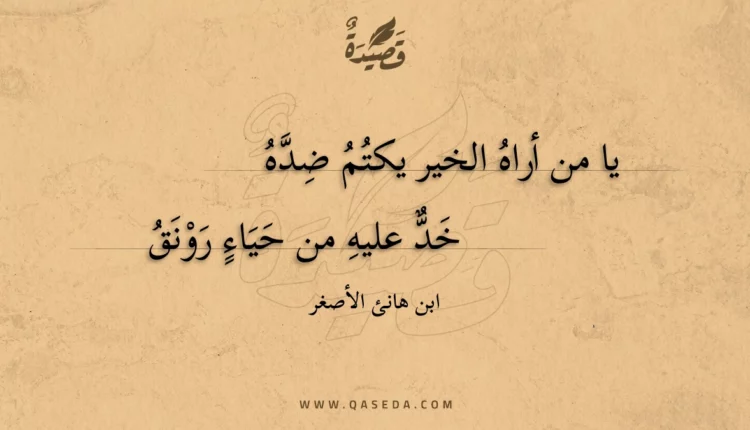 قَصِيْدَةٌ
يا من أراهُ الخير يكتُمُ ضِدَّهُ
خَدٌّ عليهِ من حَيَاءٍ رَوْنَقُ
ابن هانئ الأصغر
WWW.QASEDA.COM